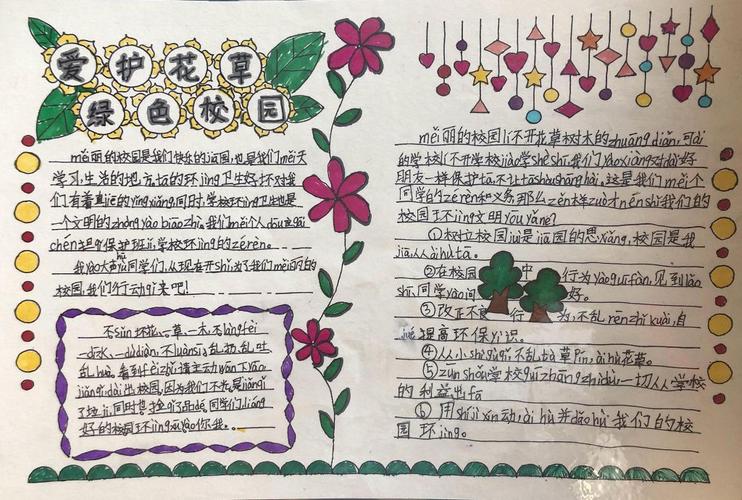 爱护花草
绿色校园
měi丽的校园是我们快乐的jiā园,也是我们měi天
学习,生活的地方.tā的环jìng卫生好坏对我
们有着直jiē的yǐng xiǎng,同时,学校环jìng卫生也是
一个文明的zhòng yào biāo zhì,我们měi个人dōu应gāi
保护班jí,学校环jìng的zé rèn。
我yào大声hū同学们,从现在开shǐ,为了我们měi丽的
校园,我们行动qǐ来吧!
不sǔn坏花、草一木,不làng fèi
一点水、一dù diàn,不luàn xiě,乱扔,乱吐,
看到fèi zhǐ请主动wān下yāo
jiǎn qǐ,dài出校园,因为我们不光是jiǎn qǐ
了lā jī,同时也捡qǐ了品dé。同学们,liáng
好的校园环jìng xū yào你我。
měi丽的校园lí不开花草树木的zhuāng diǎn,可ài
的学校lí不开学校jiào学shè shī,我们yào xiàng对dài好
朋友一样保护tā,不让tā shòu shāng hài。这是我们měi个
同学的zé rèn和义务,那么zěn样zuò才néng shǐ我们的
校园环jìng文明yōu yǎ ne?
①树立校园jiù是jiā园的思xiǎng,校园是我
jiā,人人ài hù tā。
②在校园中行为yào guī fàn,见到lǎo
shī、同学yào问好。
③改正不良行为,不乱rēng zhǐ kuài,自
jué提高环保yì识。
④人人shí qǐ不乱tà草píng,ài hù花草。
⑤zūn shǒu学校guī zhāng zhì dù,一切从学校
的利益出fā
⑥用shí jì xíng动,ài hù并dǎo hù我们的校
园环jìng。